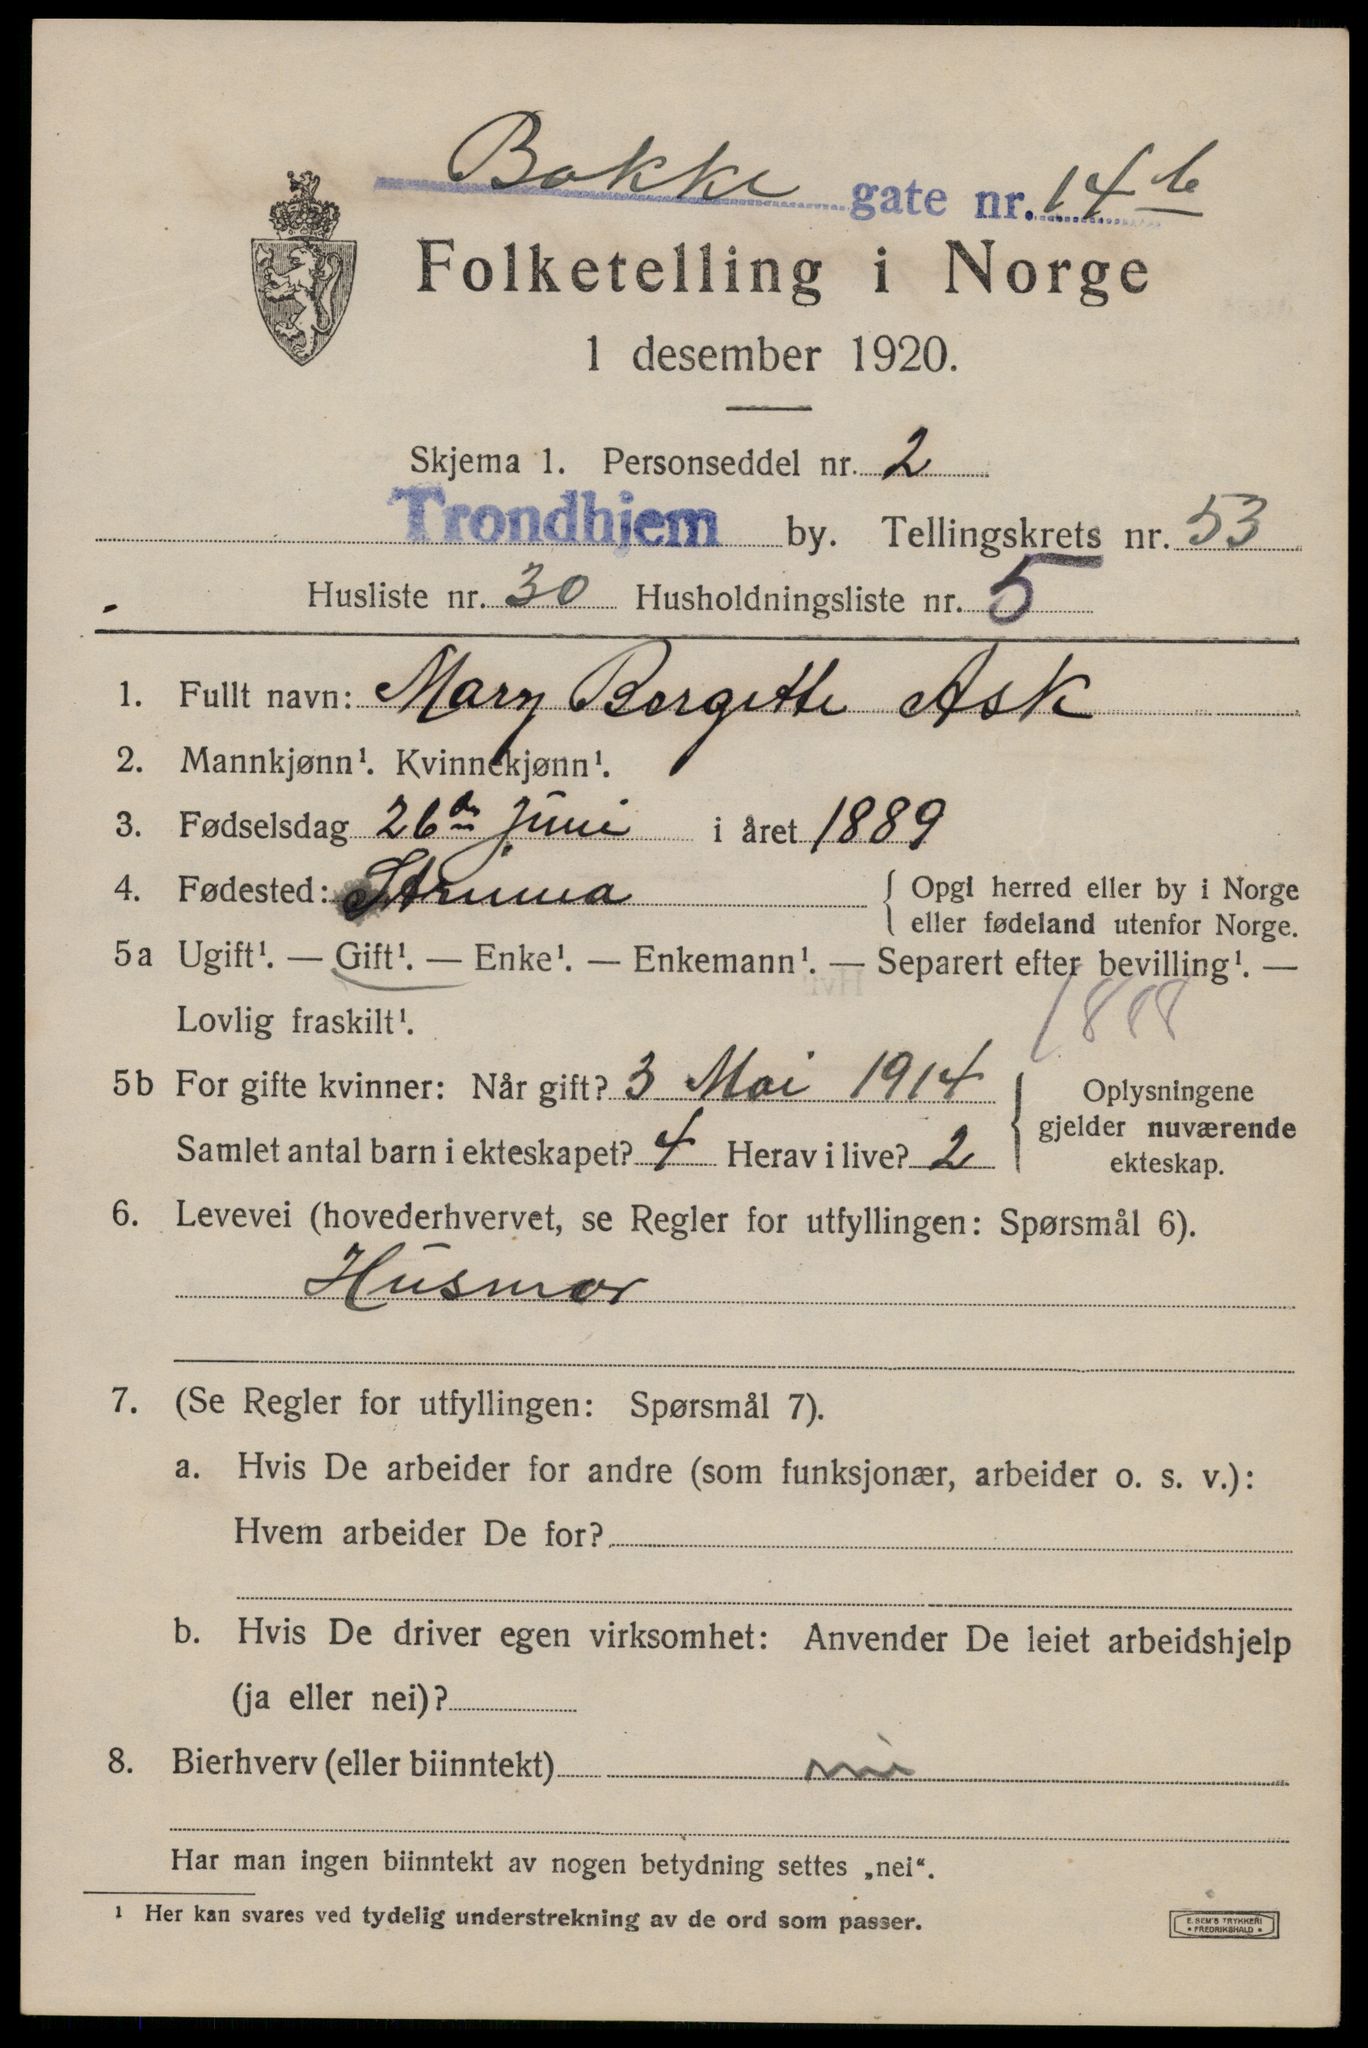 Bakke gate nr. 14 b
Folketelling i Norge
1 desember 1920.
Skjema 1. Personseddel nr. 2
Trondhjem by. Tellingskrets nr. 53
Husliste nr. 30 Husholdningsliste nr. 5
1. Fullt navn: Mary Bergitte Ask
2. Mannkjønn¹. Kvinnekjønn¹.
3. Fødselsdag 26de Juni i året 1889
4. Fødested: Strinna { Opgi herred eller by i Norge
eller fødeland utenfor Norge.
5a Ugift¹. — Gift¹. — Enke¹. — Enkemann¹. — Separert efter bevilling¹. —
Lovlig fraskilt¹.
1888
5b For gifte kvinner: Når gift? 3 Mai 1914 { Oplysningene
gjelder nuværende
ekteskap.
Samlet antal barn i ekteskapet? 4 Herav i live? 2
6. Levevei (hovederhvervet, se Regler for utfyllingen: Spørsmål 6).
Husmor
7. (Se Regler for utfyllingen: Spørsmål 7).
a. Hvis De arbeider for andre (som funksjonær, arbeider o. s. v.):
Hvem arbeider De for?
b. Hvis De driver egen virksomhet: Anvender De leiet arbeidshjelp
(ja eller nei)?
8. Bierhverv (eller biinntekt) nei
Har man ingen biinntekt av nogen betydning settes „nei“.
¹ Her kan svares ved tydelig understrekning av de ord som passer.
E. SEM'S TRYKKERI
* FREDRIKSHALD *